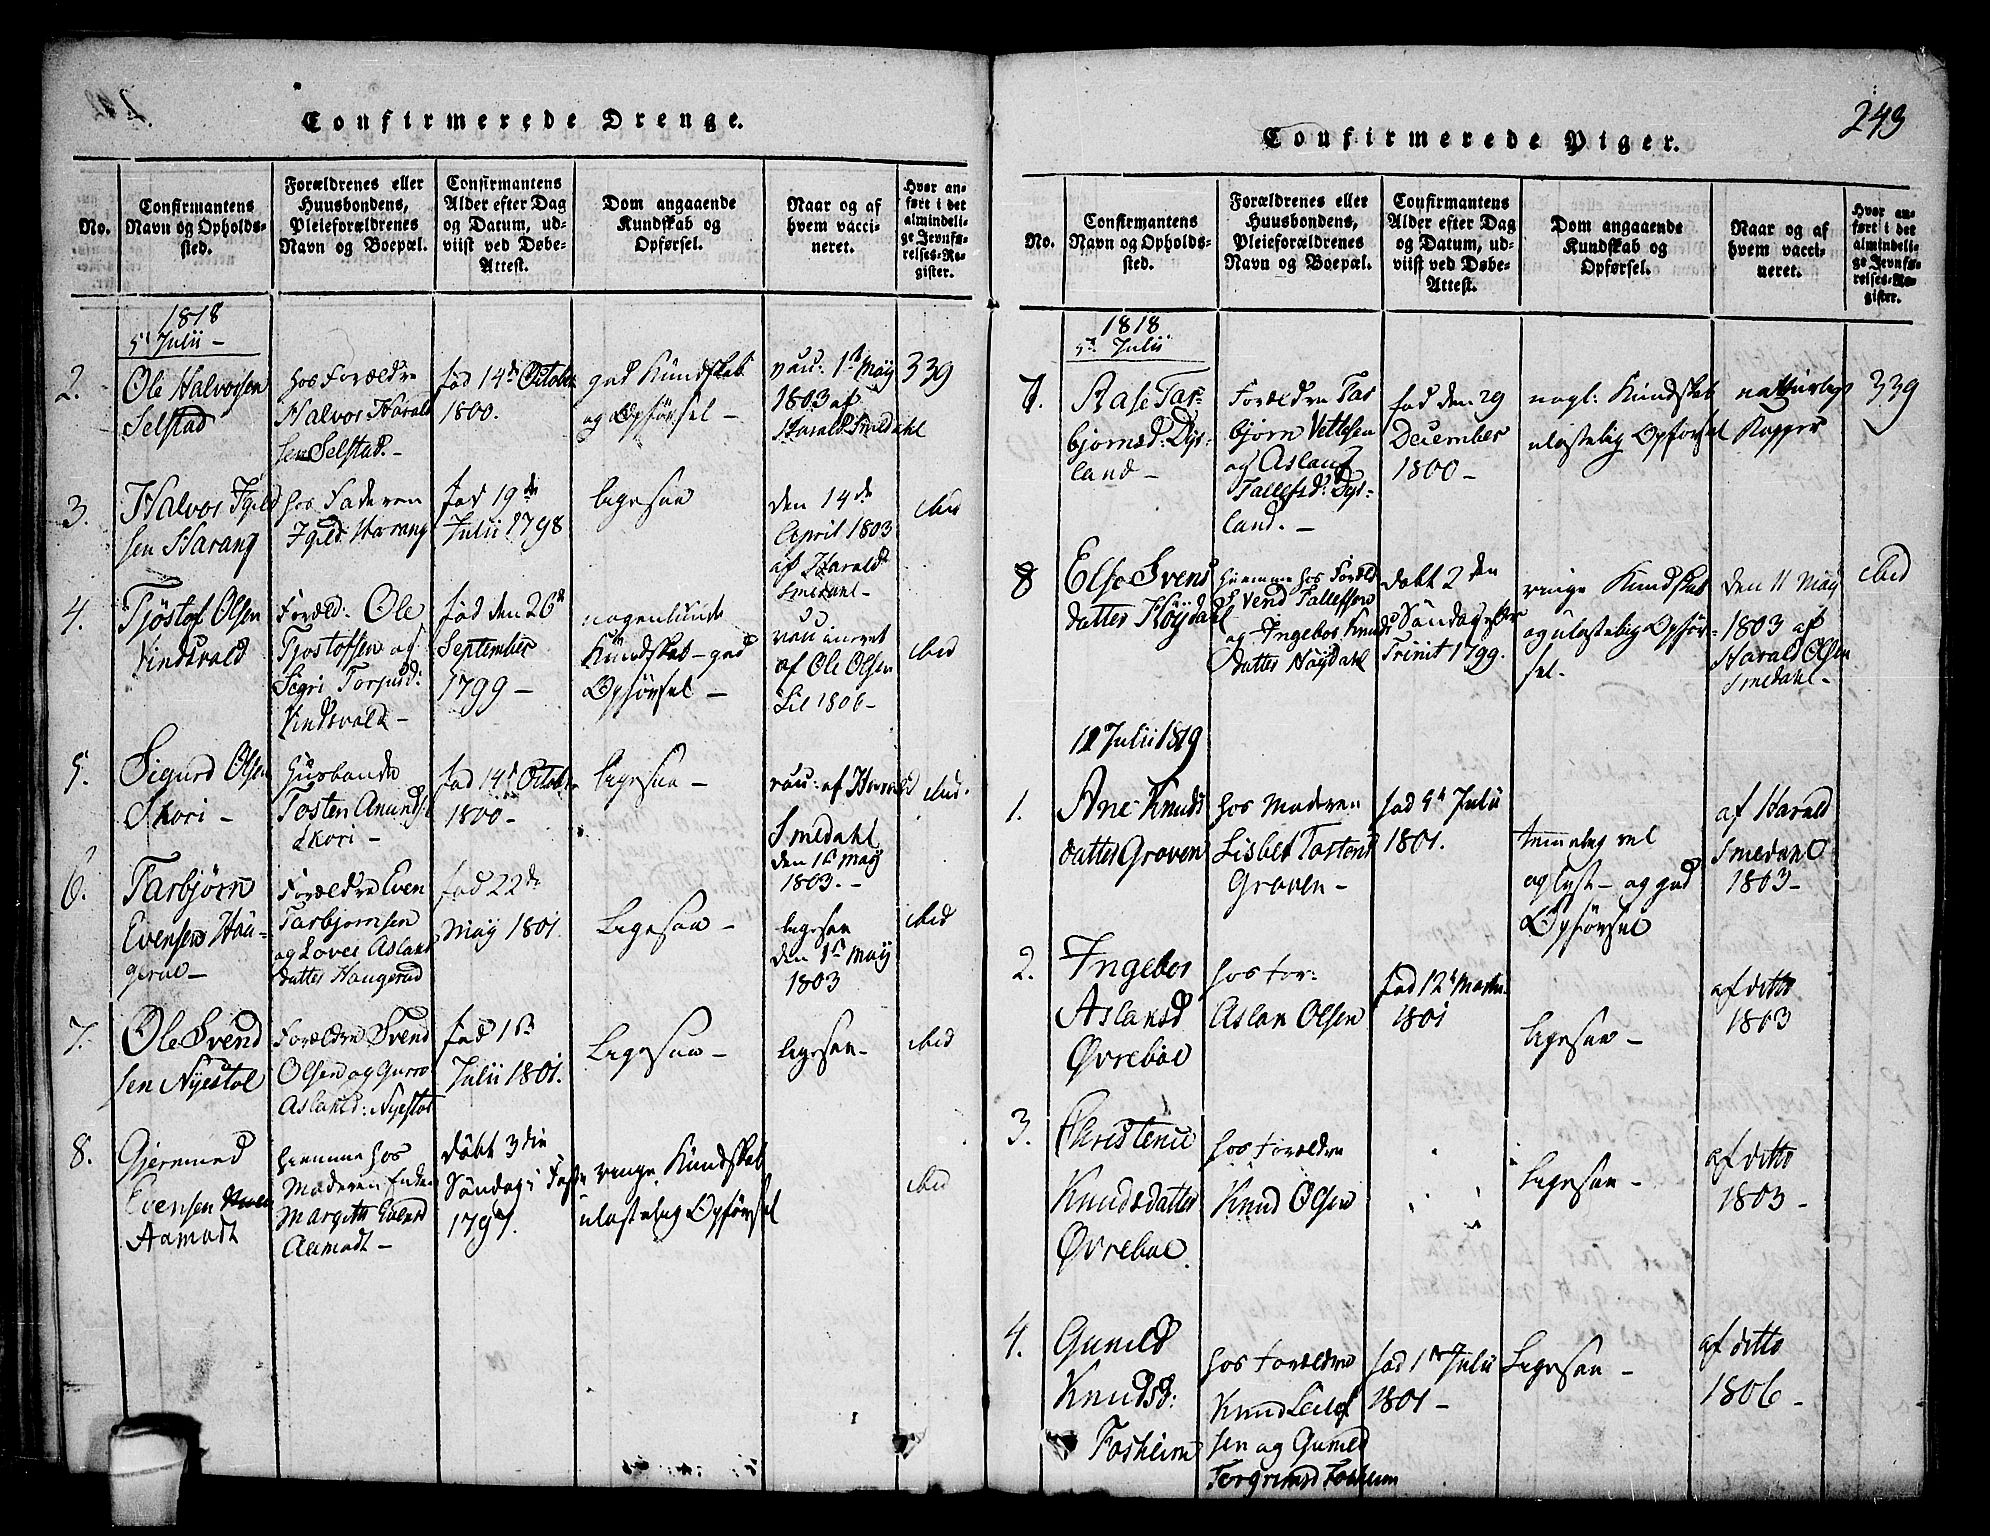 Confirmerede Drenge.
No.
Confirmantens
Navn og Opholds-
sted.
Forældrenes eller
Huusbondens,
Pleieforældrenes
Navn og Boepæl.
Confirmantens
Alder efter Dag
og Datum, ud-
viist ved Døbe-
Attest.
Dom angaaende
Kundskab og
Opførsel.
Naar og af
hvem vacci-
neret.
Hvor an-
ført i det
almindeli-
ge Jevnfø-
relses-Re-
gister.
1818
5t Julii -
2.
Ole Halvorsen
Selstad
hos Forældre
Halvor Harald
sen Selstad. -
fød 14de October
1800.
god Kundskab
og Opførsel -
vacc: 1st May
1803 af
Harald Smedahl
339
3.
Halvor Igild
sen Harang
hos Faderen
Igild Harang
fød 19de
Julii 1798
ligesaa
den 14de
April 1803
af Harald
Smedahl -
ibid
4.
Tjøstof Olsen
Vindsvald
Foræld: Ole
Tjostofsen og
Sigri Torjusd:
Vindsvald -
fød den 26de
September
1799 -
nogenlunde
Kundskab - god
Opførsel -
vaccineret
af Ole Olsen
Lie 1806 -
ibid
5.
Sigurd Olsen
Skori -
Husbonde
Tosten Amunds:
Skori -
fød 14de October
1800 -
ligesaa -
vacc: af Harald
Smedahl
den 1st May
1803. -
ibid.
6.
Tarbjørn
Evensen Hau-
gerae -
Forældre Even
Tarbjornsen
og Lovee Aslaks
datter Haugerud
fød 22de
May 1801
Ligesaa -
ligesaa
den 1st May
1803
ibid
7.
Ole Svend
sen Nyestol
Forældre Svend
Olsen og Gurro
Aslaksd: Nyestol
fød 1st
Julii 1801.
Ligesaa -
ligesaa -
ibid
8.
Gjermund
Evensen
Aamodt
hiemme hos
Moderen Enke
Margith Evensd
Aamodt -
døbt 3die
Søndag i Faste
1797.
ringe Kundskab
ulastelig Opførsel
ibid
243
Confirmerede Piger.
No.
Confirmantens
Navn og Opholds-
sted.
Forældrenes eller
Huusbondens,
Pleieforældrenes
Navn og Boepæl.
Confirmantens
Alder efter Dag
og Datum, ud-
viist ved Døbe-
Attest.
Dom angaaende
Kundskab og
Opførsel.
Naar og af
hvem vacci-
neret.
Hvor an-
ført i det
almindeli-
ge Jevnfø-
relses-Re-
gister.
1818
5t Julii
7.
Aase Tar-
bjørnsd: Dys-
land -
Forældre Tar
bjørn Vetlesen
og Aslaug
Tallefsd: Dys-
land. -
fød den 29
December
1800 -
nogl: Kundskab
ulastelig Opførsel
naturlige
Kopper
339
8
Else Svens
datter Høydahl
hiemme hos Foræld
Svend Tallefsen
og Ingebor Knuds
datter Høydahl
døbt 2den
Søndag efter
Trinit 1799.
ringe Kundskab
og ulastelig Opfør-
sel.
den 11 May
1803 af
Harald Olsen
Smedahl -
ibid
11 Julii 1819
1.
Ane Knuds
datter Groven
hos Moderen
Lisbet Tostens
Groven -
fød 5t Julii
1801.
temmelig vel
oplyst - og god
Opførsel
af Harald
Smedahl
1803 -
2.
Ingebor
Aslaksd
Øvreboe
hos For:
Aslak Olsen
fød 12t Martii
1801
Ligesaa -
af ditto
1803
3.
Christence
Knudsdatter
Øvreboe.
hos Forældre
Knud Olsen
Ligesaa -
af ditto
1803 -
4.
Guneld
Knudsd:
Fosheim
hos Forældre
Knud Leilof
sen og Guneld
Torgrimsd Fosheim
fød 1ste Julii
1801 -
Ligesaa -
af ditto
1806 -